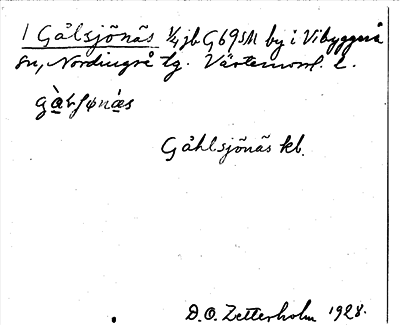 1 Gålsjönäs 1/4 jb G69SM by i Vibyggerå
sn, Nordingrå tg. Västernorrl. l.
Gåhlsjönäs kb.
D. O. Zetterholm 1928.